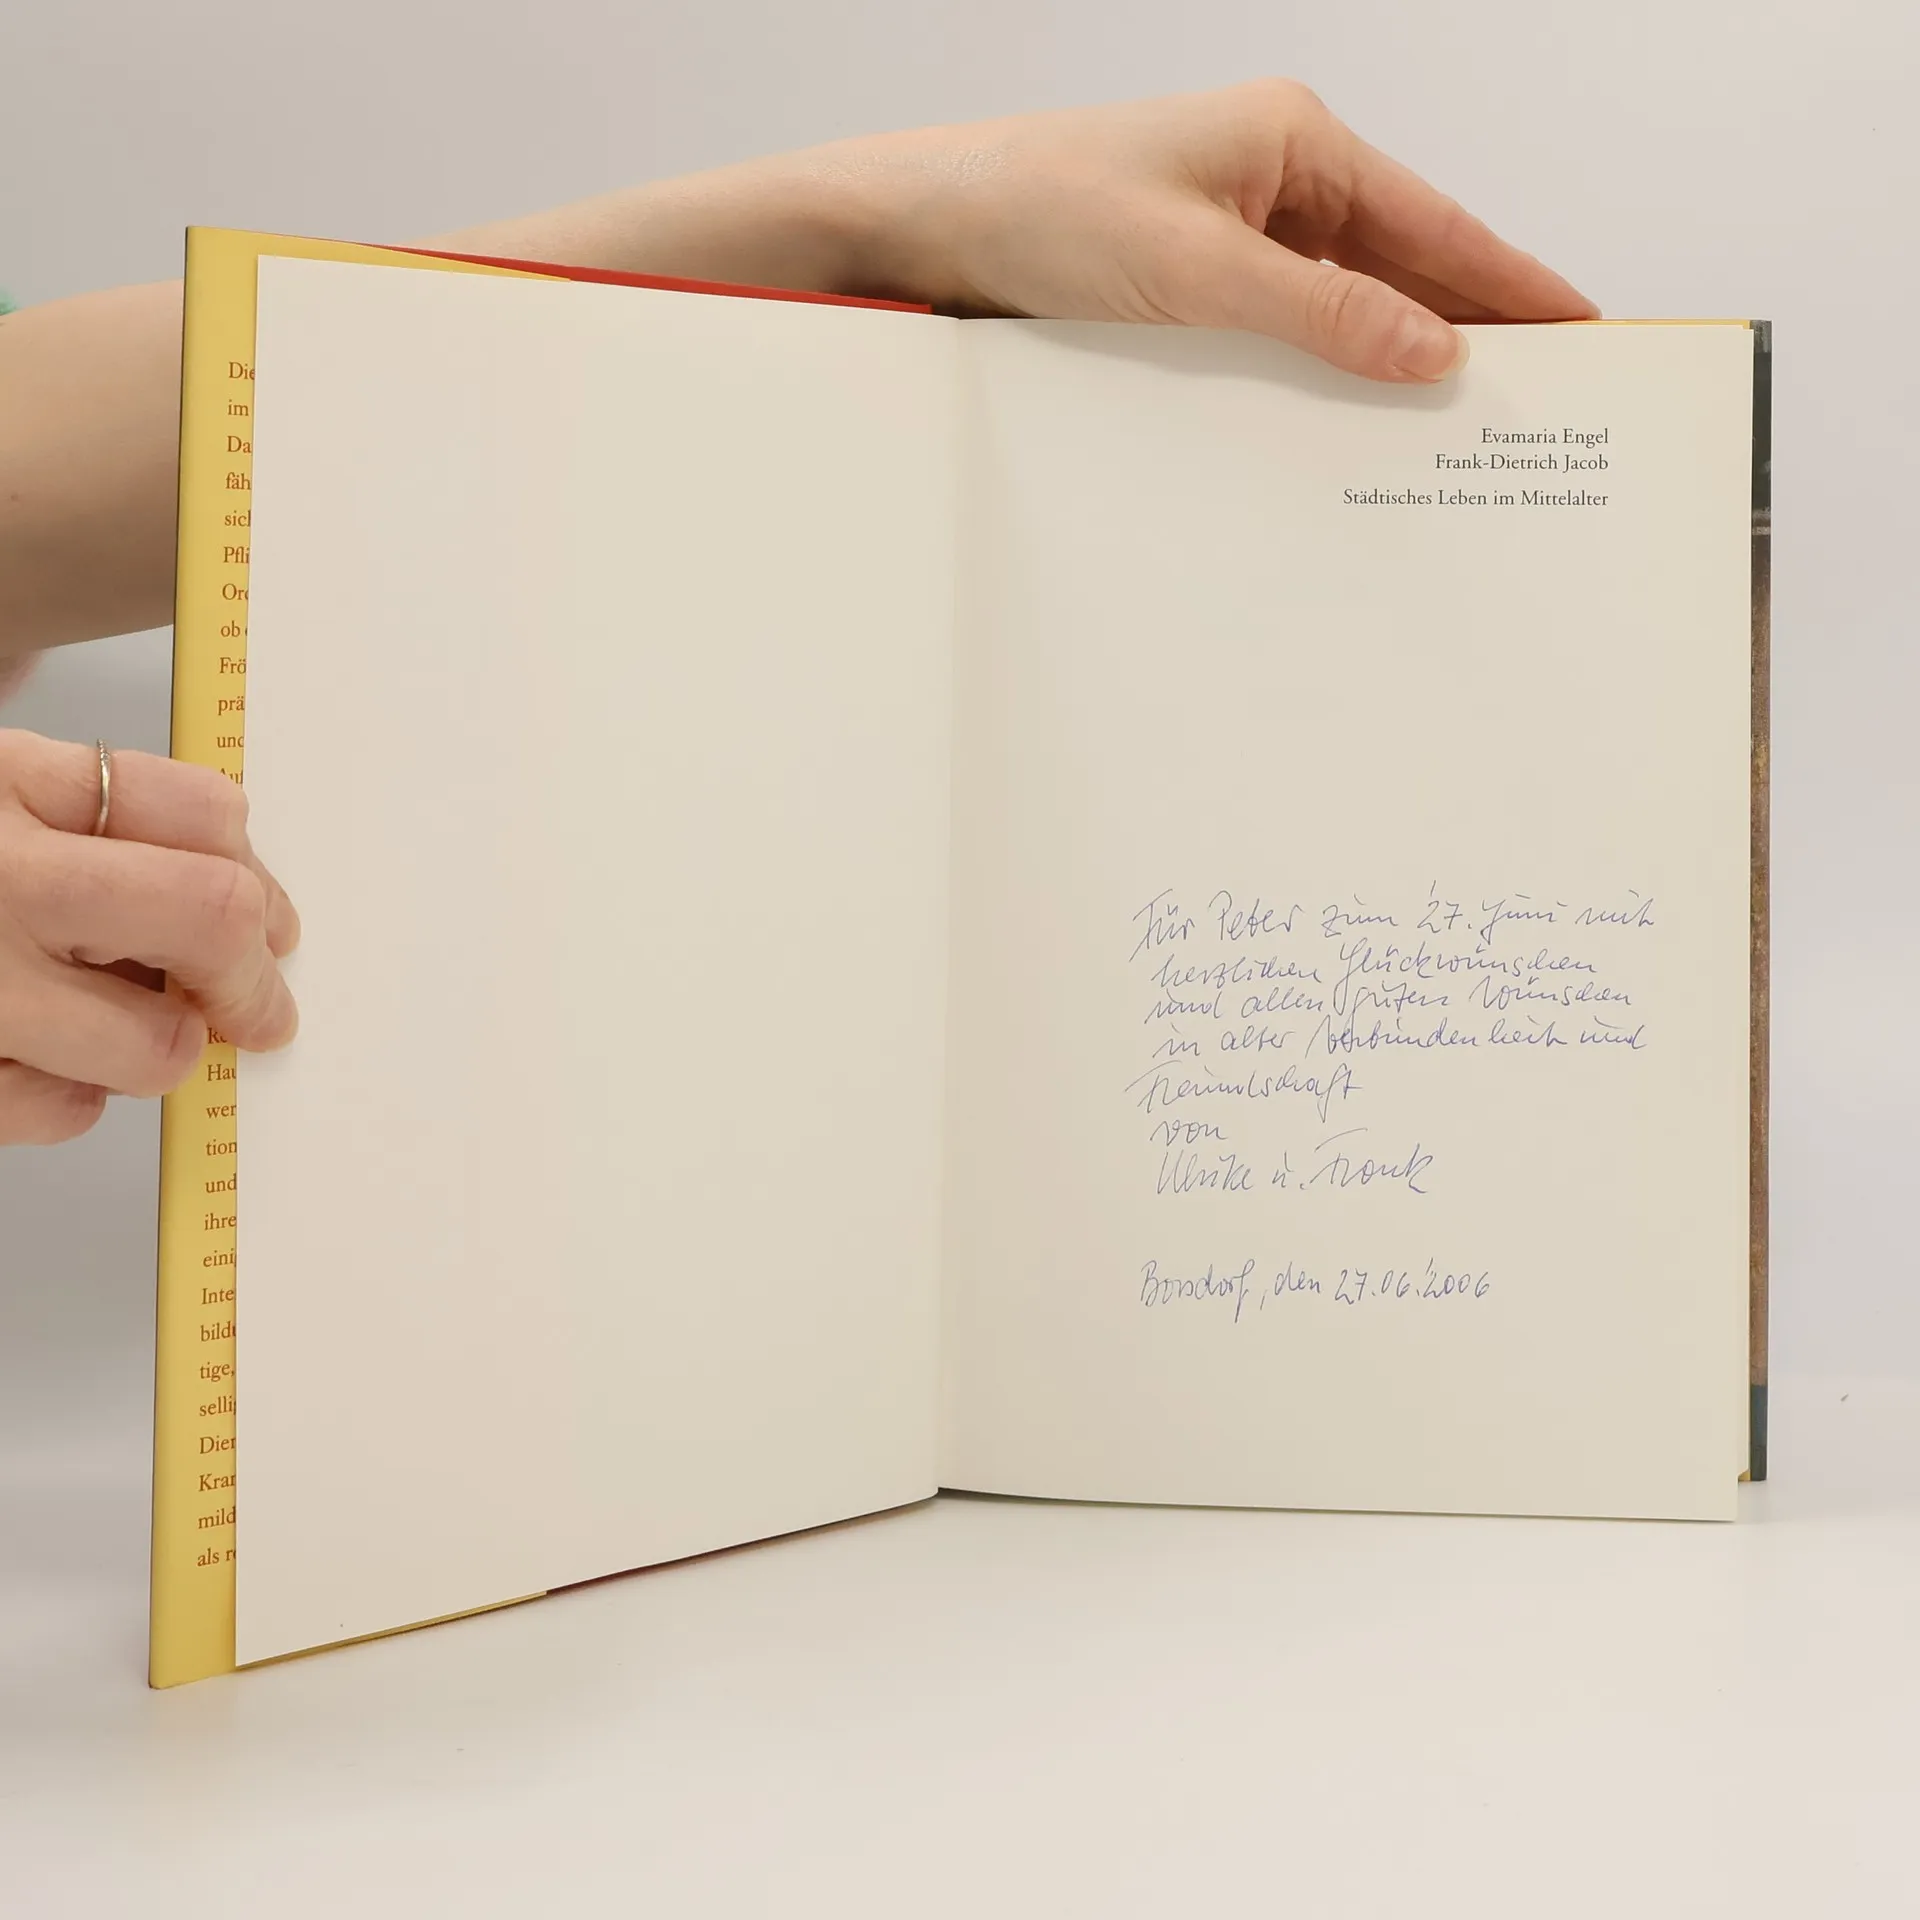 Die
im
Da
fäh
sich
Pfli
Ord
ob
Frö
prä
und
Auf
Hau
wer
tion
und
ihre
eini
Inte
bild
tige,
selli
Dien
Kran
mild
als
Evamaria Engel
Frank-Dietrich Jacob
Städtisches Leben im Mittelalter
Für Peter zum 27. Juni mit
herzlichen Glückwünschen
und allen guten Wünschen
in alter Verbundenheit und
Freundschaft
von
Ulrike u. Frank
Borsdorf, den 27.06.2006